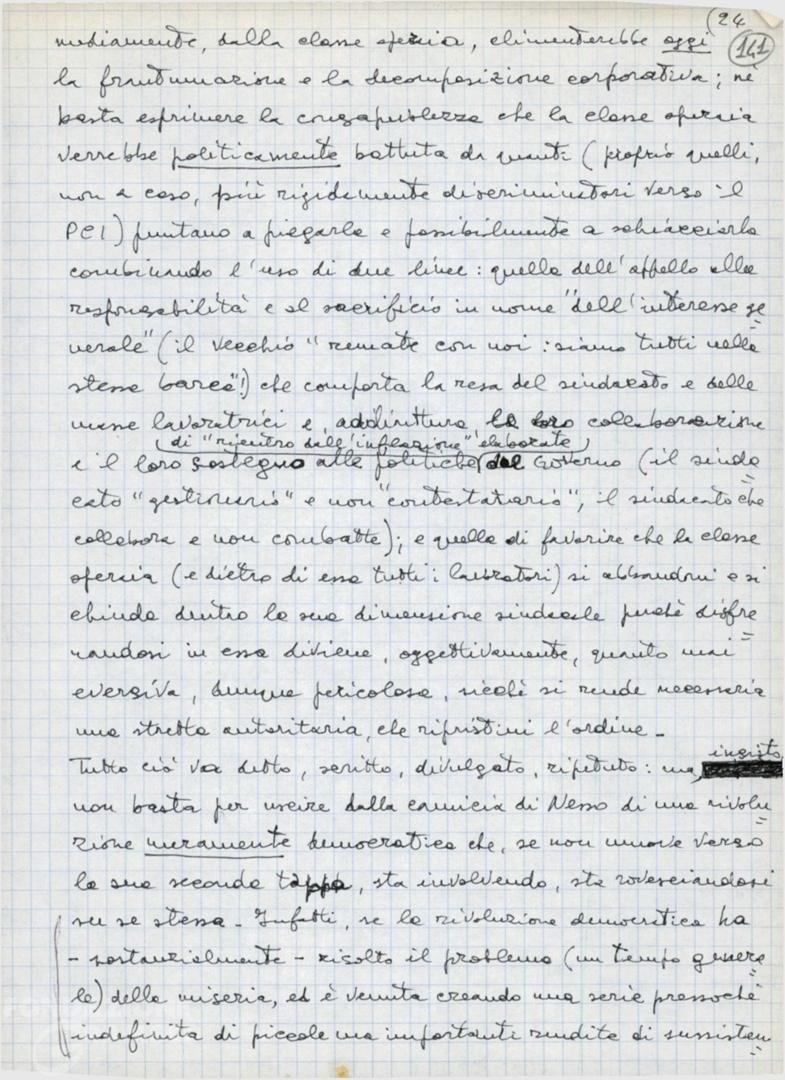 (24
141
mediamente, dalla classe operaia, alimenterebbe oggi
la frantumazione e la decomposizione corporativa; nè
basta esprimere la consapevolezza che la classe operaia
verrebbe politicamente battuta da quanti (proprio quelli,
non a caso, più rigidamente discriminatori verso il
PCI) puntano a piegarla e possibilmente a schiacciarla
combinando l'uso di due linee: quella dell'appello alla
responsabilità e al sacrificio in nome "dell'interesse ge=
nerale" (il vecchio "remate con noi: siamo tutti nella
stessa barca"!) che comporta la resa del sindacato e delle
masse lavoratrici e, addirittura, la loro collaborazione
di "rientro dall'inflazione" elaborate
e il loro sostegno alle politiche dal Governo (il sinda
cato "gestionario" e non "contestatario", il sindacato che
collabora e non combatte); e quella di favorire che la classe
operaia (e dietro di essa tutti i lavoratori) si abbandoni e si
chiuda dentro la sua dimensione sindacale perchè disfre=
nandosi in essa diviene, oggettivamente, quanto mai
eversiva, dunque pericolosa, sicchè si rende necessaria
una stretta autoritaria, che ripristini l'ordine.
Tutto ciò va detto, scritto, divulgato, ripetuto: ma, insisto
non basta per uscire dalla camicia di Nesso di una rivolu=
zione meramente democratica che, se non muove verso
la sua seconda tappa, sta involvendo, sta rovesciandosi
su se stessa. Infatti, se la rivoluzione democratica ha
- sostanzialmente - risolto il problema (un tempo genera=
le) della miseria, ed è venuta creando una serie pressochè
indefinita di piccole ma importanti rendite di sussisten=